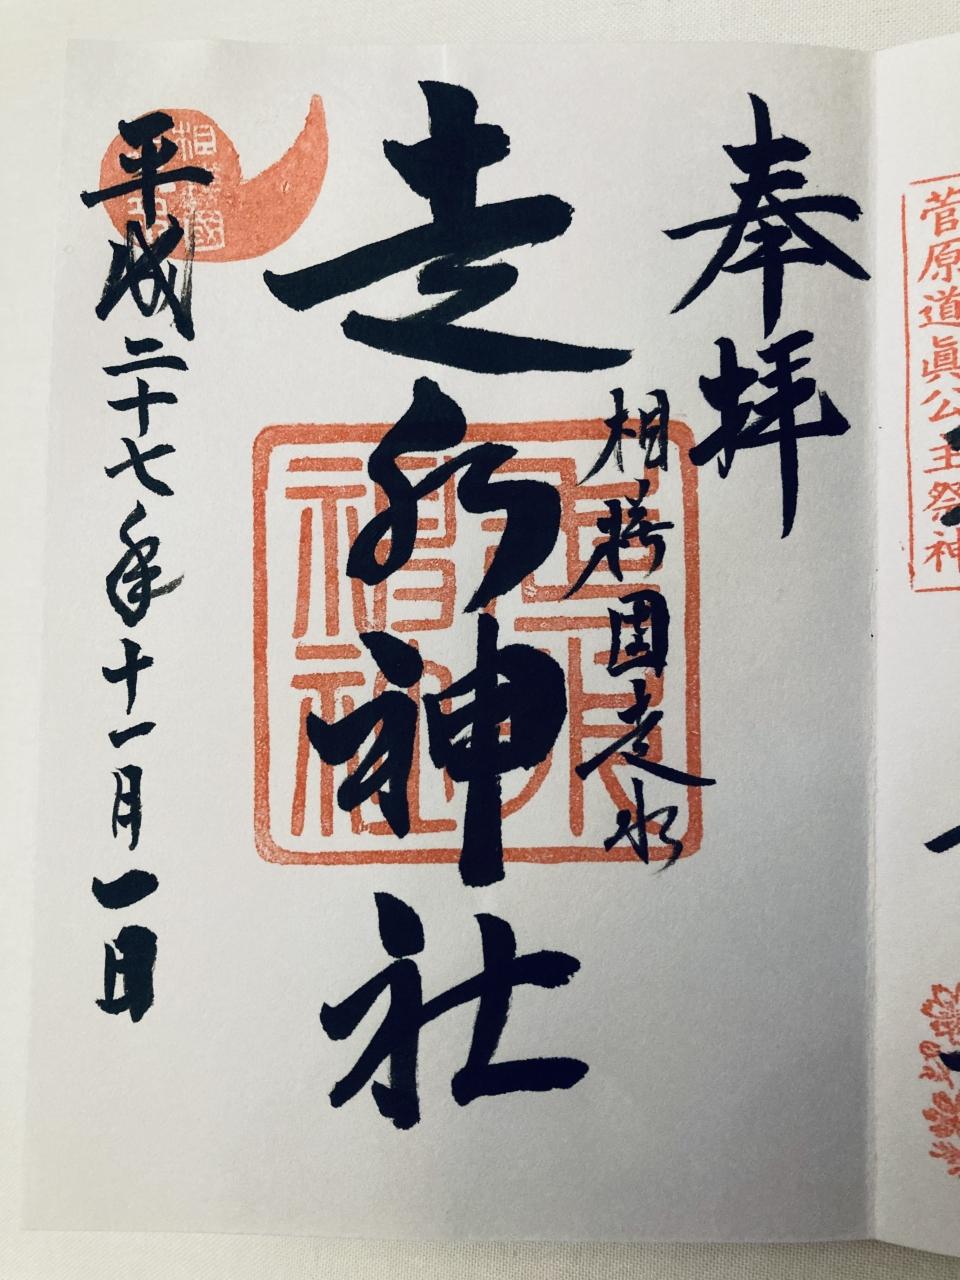 菅原道眞公主祭神
奉拝
相模国走水
走水神社
平成二十七年十一月一日